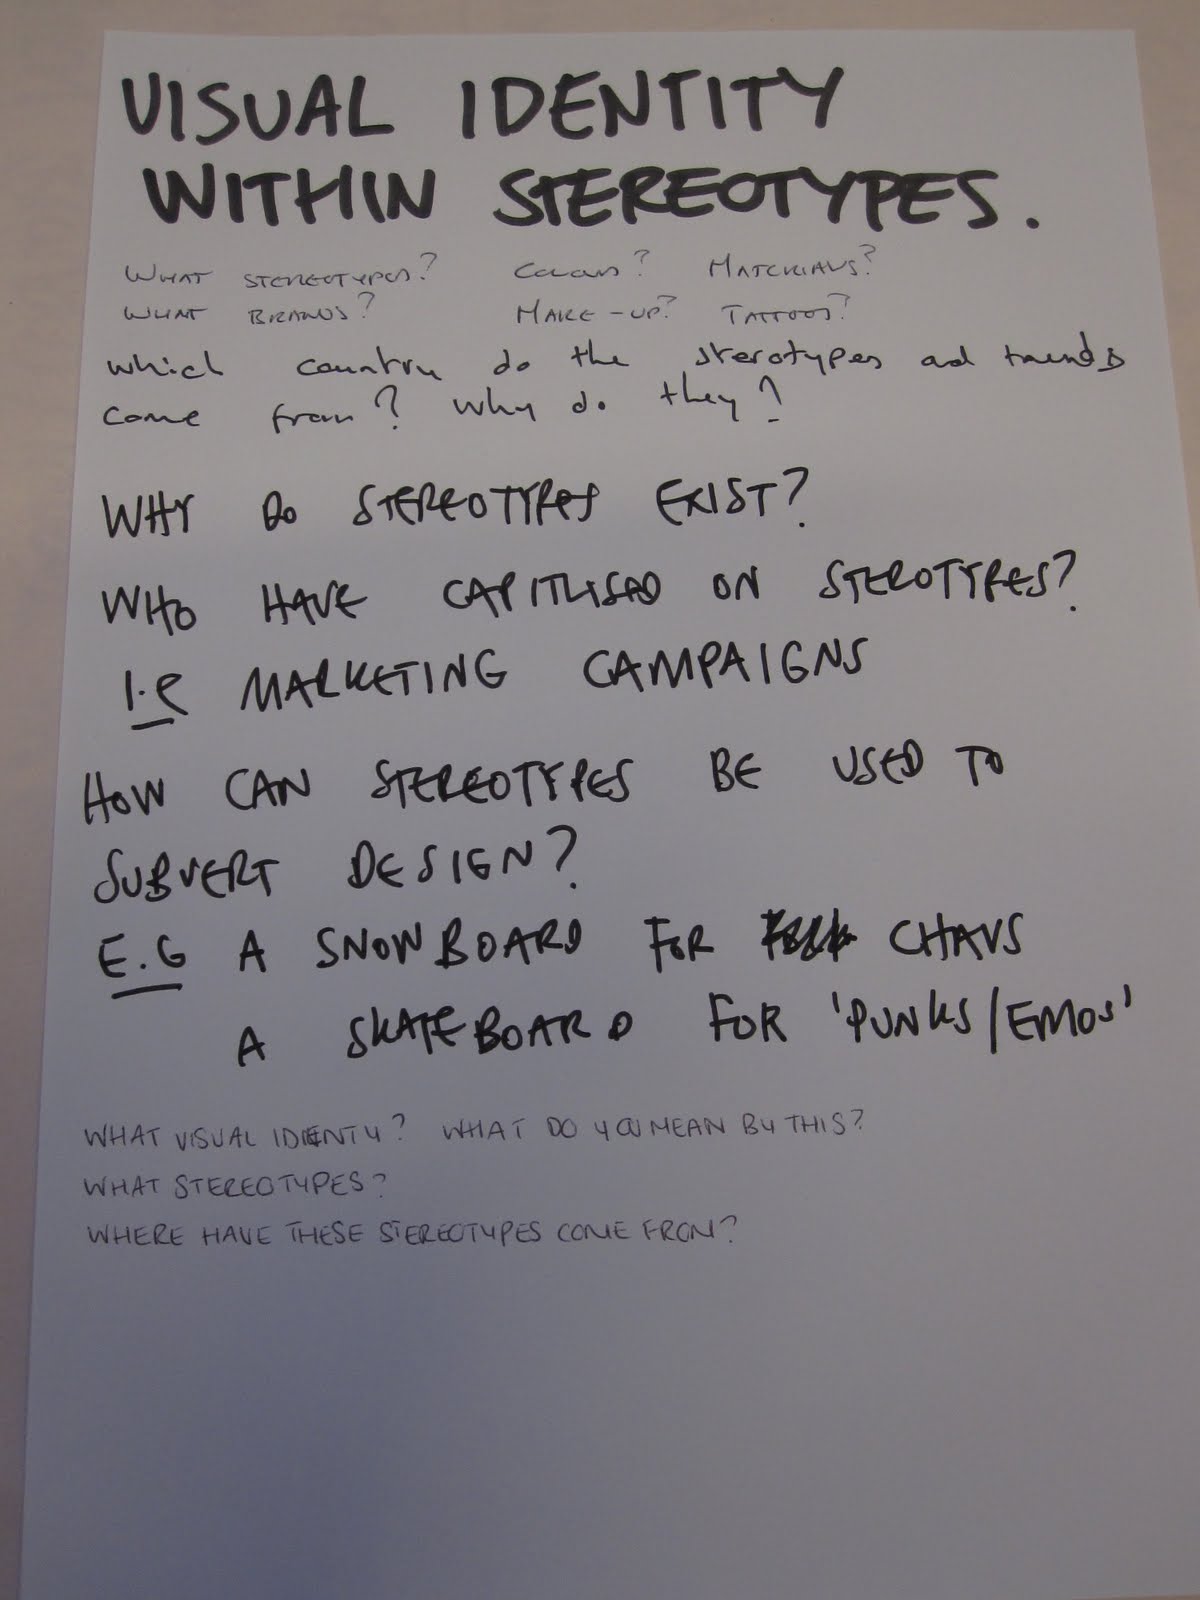 VISUAL IDENTITY
WITHIN STEREOTYPES.
WHAT STEREOTYPES? COLOURS? MATERIALS?
WHAT BRANDS? MAKE-UP? TATTOOS?
which country do the sterotypes and trends
come from? Why do they?
WHY DO STEREOTYPES EXIST?
WHO HAVE CAPITILISED ON STEROTYPES?
I.e MARKETING CAMPAIGNS
HOW CAN STEREOTYPES BE USED TO
SUBVERT DESIGN?
E.G A SNOWBOARD FOR CHAVS
A SKATEBOARD FOR 'PUNKS/EMOS'
WHAT VISUAL IDENTY? WHAT DO YOU MEAN BY THIS?
WHAT STEREOTYPES?
WHERE HAVE THESE STEREOTYPES COME FROM?